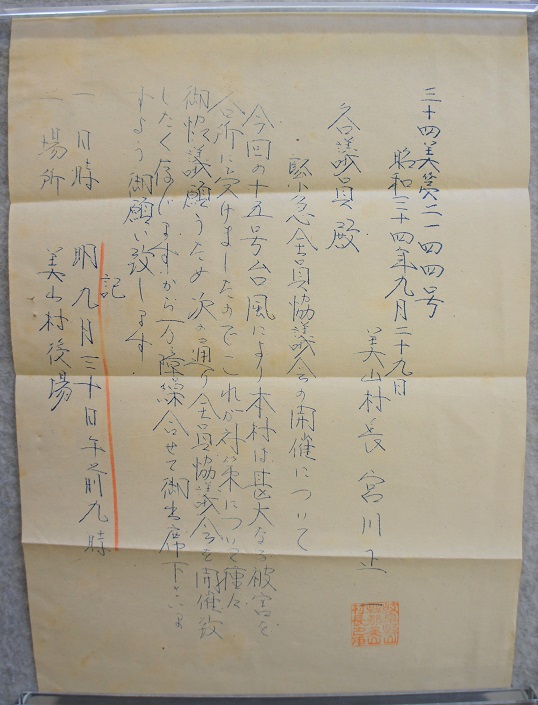 三十四美第二一四四号
昭和三十四年九月二十九日
美山村長 宮川正
各議員殿
緊急全員協議会の開催について
今回の十五号台風により本村は甚大なる被害を
各所に受けましたのでこれが対策について種々
御協議願うため次の通り全員協議会を開催致
したく存じますから万障繰合せて御出席下さいま
すよう御願い致します.
記
一 日時 明九月三十日午前九時
一 場所 美山村役場